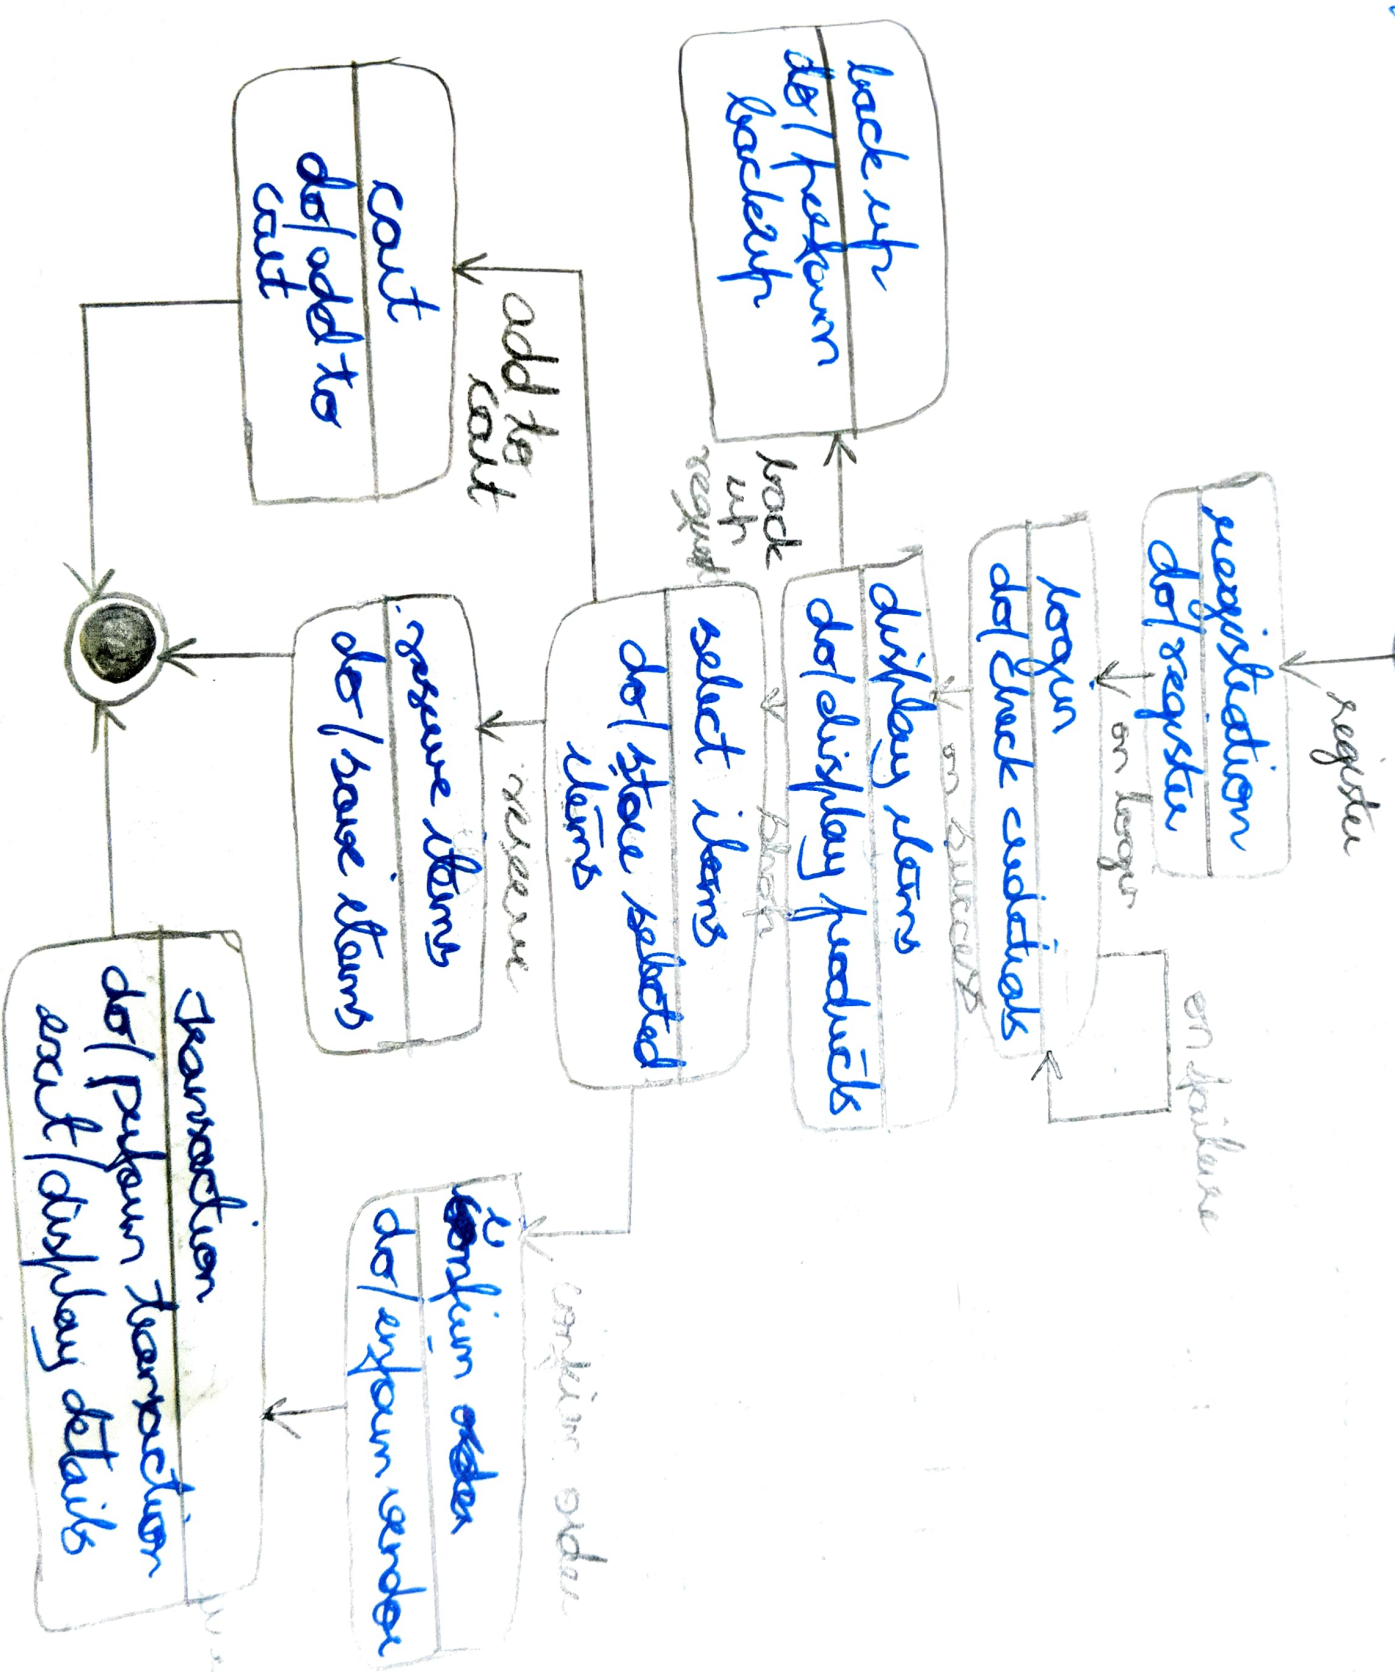 register
registration
do/register
on login
login
do/check credentials
on failure
on success
display items
do/display products
back
up
request
back up
do/perform
backup
select items
do/store selected
items
add to
cart
cart
do/add to
cart
reserve
reserve items
do/save items
confirm order
confirm order
do/inform vendor
Transaction
do/perform transaction
exit/display details